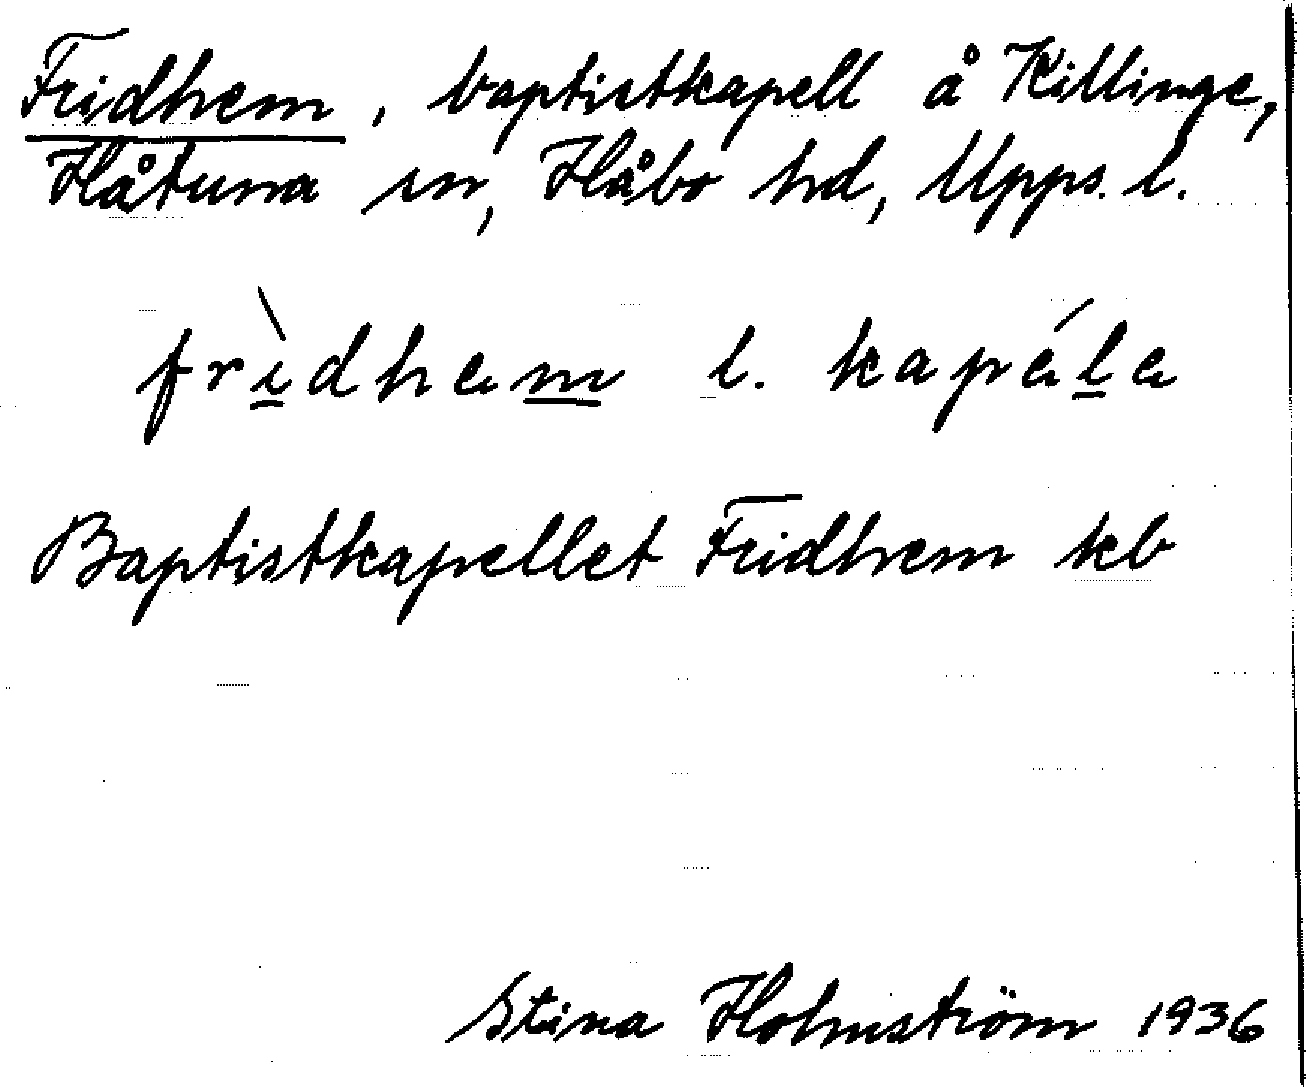 Fridhem, baptistkapell å Killinge,
Håtuna sn, Håbo hd, Upps. l.
frìdhem l. kapéle
Baptistkapellet Fridhem kb
Stina Holmström 1936